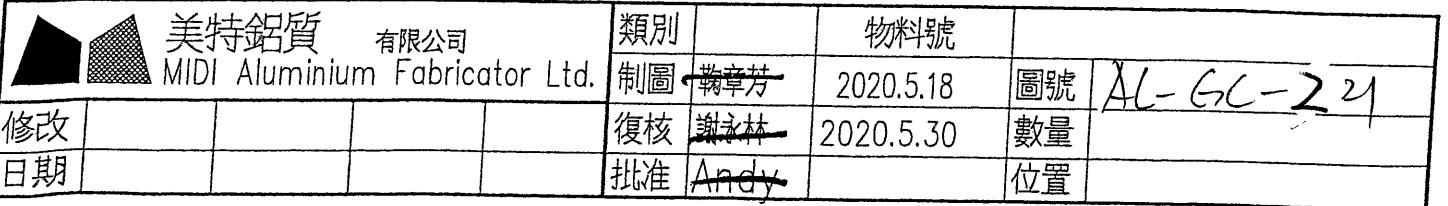 美特鋁質 有限公司
MIDI Aluminium Fabricator Ltd.
類別 物料號
制圖 鞠章芳 2020.5.18 圖號 AL-GC-221
修改 復核 謝永林 2020.5.30 數量
日期 批准 Andy 位置